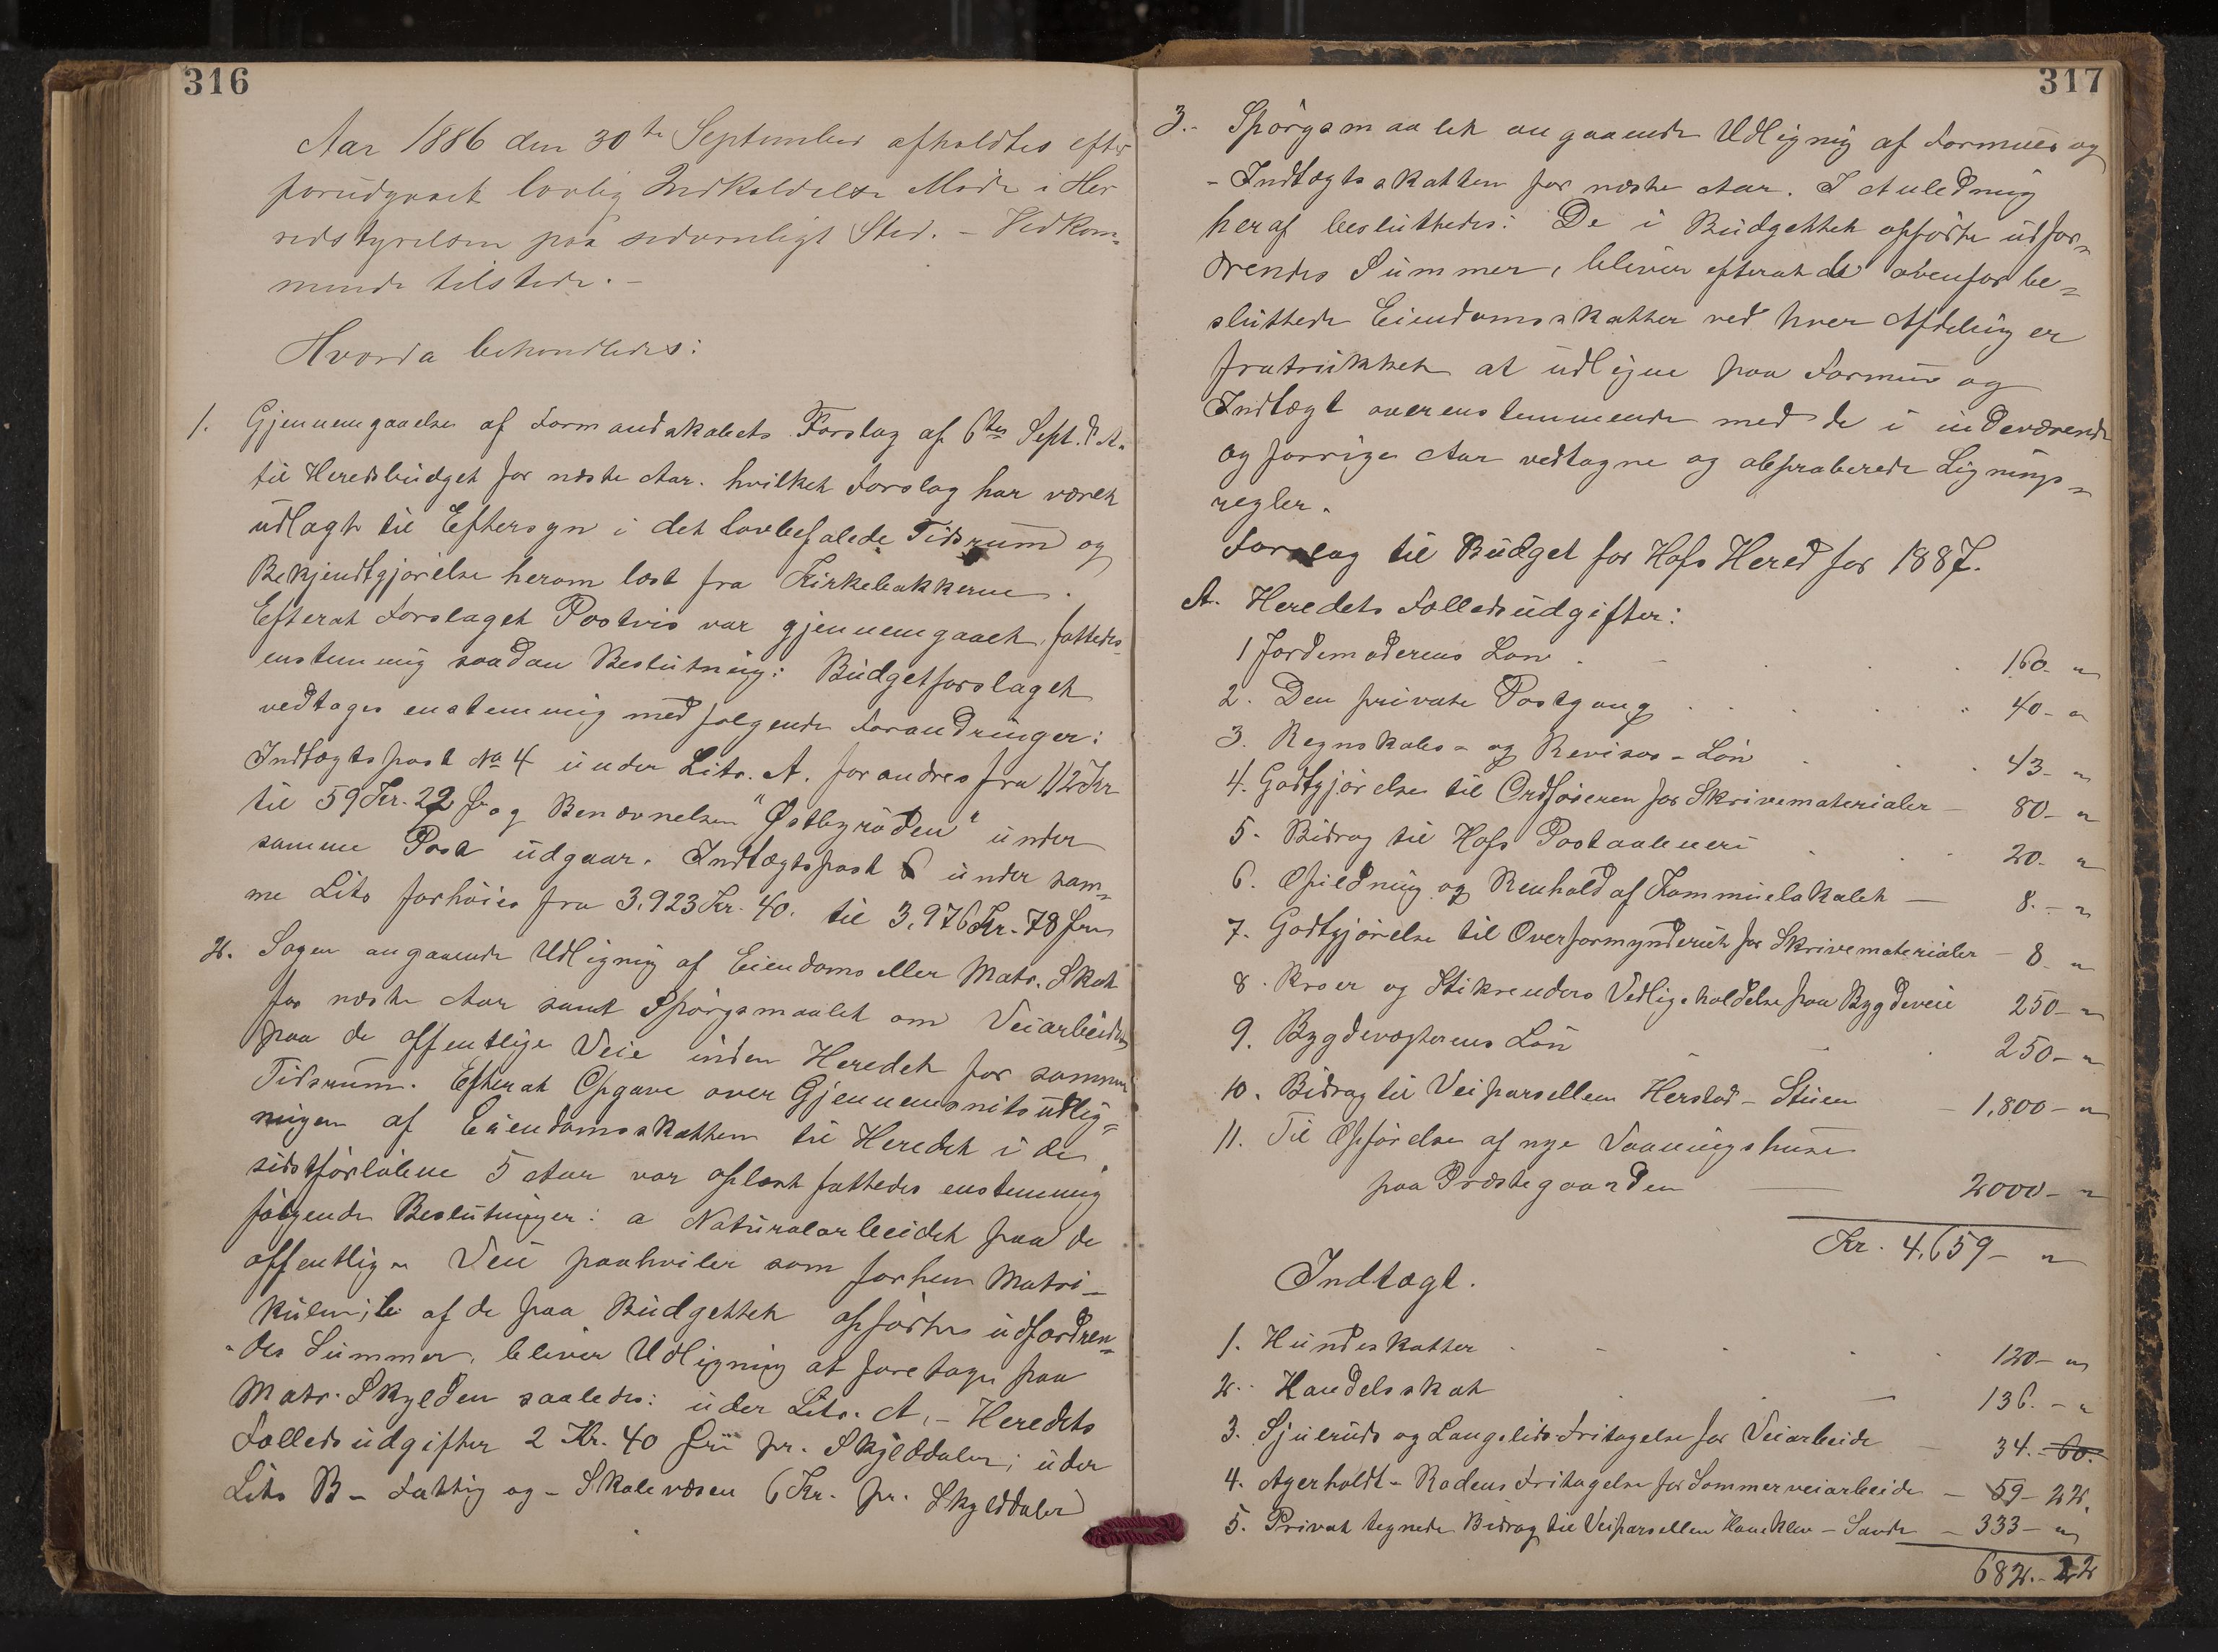 316
Aar 1886 den 30te September afholdtes efter
forudgaaet lovlig Indkaldelse Møde i Her
redsstyrelsen paa sedvanligt Sted. - Vedkom-
mende tilstede. -
Hvorda behandledes:
1. Gjennemgaaelse af Formandskabets Forslag af 6te Sept. d. A.
til Heredsbudget for næste Aar. hvilket Forslag har været
udlagt til Eftersyn i det lovbefalede Tidsrum og
Bekjendtgjørelse herom læst fra Kirkebakkerne.
Efterat Forslaget Postvis var gjennemgaaet, fattedes
enstemmig saadan Beslutning: Budgetforslaget
vedtoges enstemmig med følgende Forandringer:
Indtægtspost No 4 under Litr. A. forandres fra 112 Kr
til 59 Kr. 22 Ør og Benævnelsen "Østbyroden" under
samme Post udgaar. Indtægtspost 6 under sam-
me Litr forhøies fra 3,923 Kr. 40. til 3,976 Kr. 78 Øre
2. Sagen angaaende Udligning af Eiendoms eller Matr. Skat
for næste Aar samt Spørgsmaalet om Veiarbeidet
paa de offentlige Veie inden Heredet for samme
Tidsrum. Efterat Opgave over Gjennemsnitsudlig=
ningen af Eiendomsskatten til Heredet i de
sidstforløbne 5 Aar var oplæst fattedes enstemmig
følgende Beslutninger: a Naturalarbeidet paa de
offentlige Veie paahviler som forhen Matri-
kulen; b af de paa Budgettet opførtes udfordren=
-des Summer, bliver Udligning at foretages paa
Matr. Skylden saaledes: uder Litr. A, - Heredets
Fælledsudgifter 2 Kr. 40 Øre pr. Skylddaler; uder
Litr B - Fattig og - Skolevæsen 6 Kr. pr. Skylddaler
317
3.- Spørgsmaalet angaaende Udligning af Formues og
- Indtægtsskatten for næste Aar. I Anledning
heraf besluttedes: De i Budgettet opførte udfor=
drendes Summer, bliver efterat de ovenfor be=
sluttede Eiendomsskatter ved hver Afdeling er
fratrukket at udligne paa Formue og
Indtægt overensstemmende med de i indeværende
og forrige Aar vedtagne og approberede Lignings=
regler.
Forslag til Budget for Hofs Hered for 1887.
A. Heredets Fælledsudgifter:
1 Jordemoderens Løn . - . . . 160. "
2. Den private Postgang . . . . . 40 - "
3. Regnskabs- og Revisor - Løn . . . 43 - "
4. Godtgjørelse til Ordføreren for Skrivematerialer - 80 - "
5. Bidrag til Hofs Postaabneri . . . 20. "
6. Opildning og Renhold af Kommunelokalet - 8. - "
7. Godtgjørelse til Overformynderiet for Skrivematerialer - 8. "
8. Broer og Stikrenders Vedligeholdelse paa Bygdeveie 250 - "
9. Bygdevægterens Løn - - . 250 - "
10. Bidrag til Veiparsellen Herstad - Stuen - 1,800 - "
11. Til Opførelse af nye Vaaningshuse
paa Præstegaarden - 2000 - "
Kr. 4,659 - "
Indtægt.
1. Hundeskatter . - . . . 120 - "
2. Handelsskat . . - 136. - "
3. Sjuleruds og Langelids Fritagelse for Veiarbeide - 34. - 60.
4. Agerholdt - Rodens Fritagelse for Sommerveiarbeide - 59 - 22.
5. Privat tegnede Bidrag til Veiparsellen Haneklev - Sande - 333 - "
682. - 22